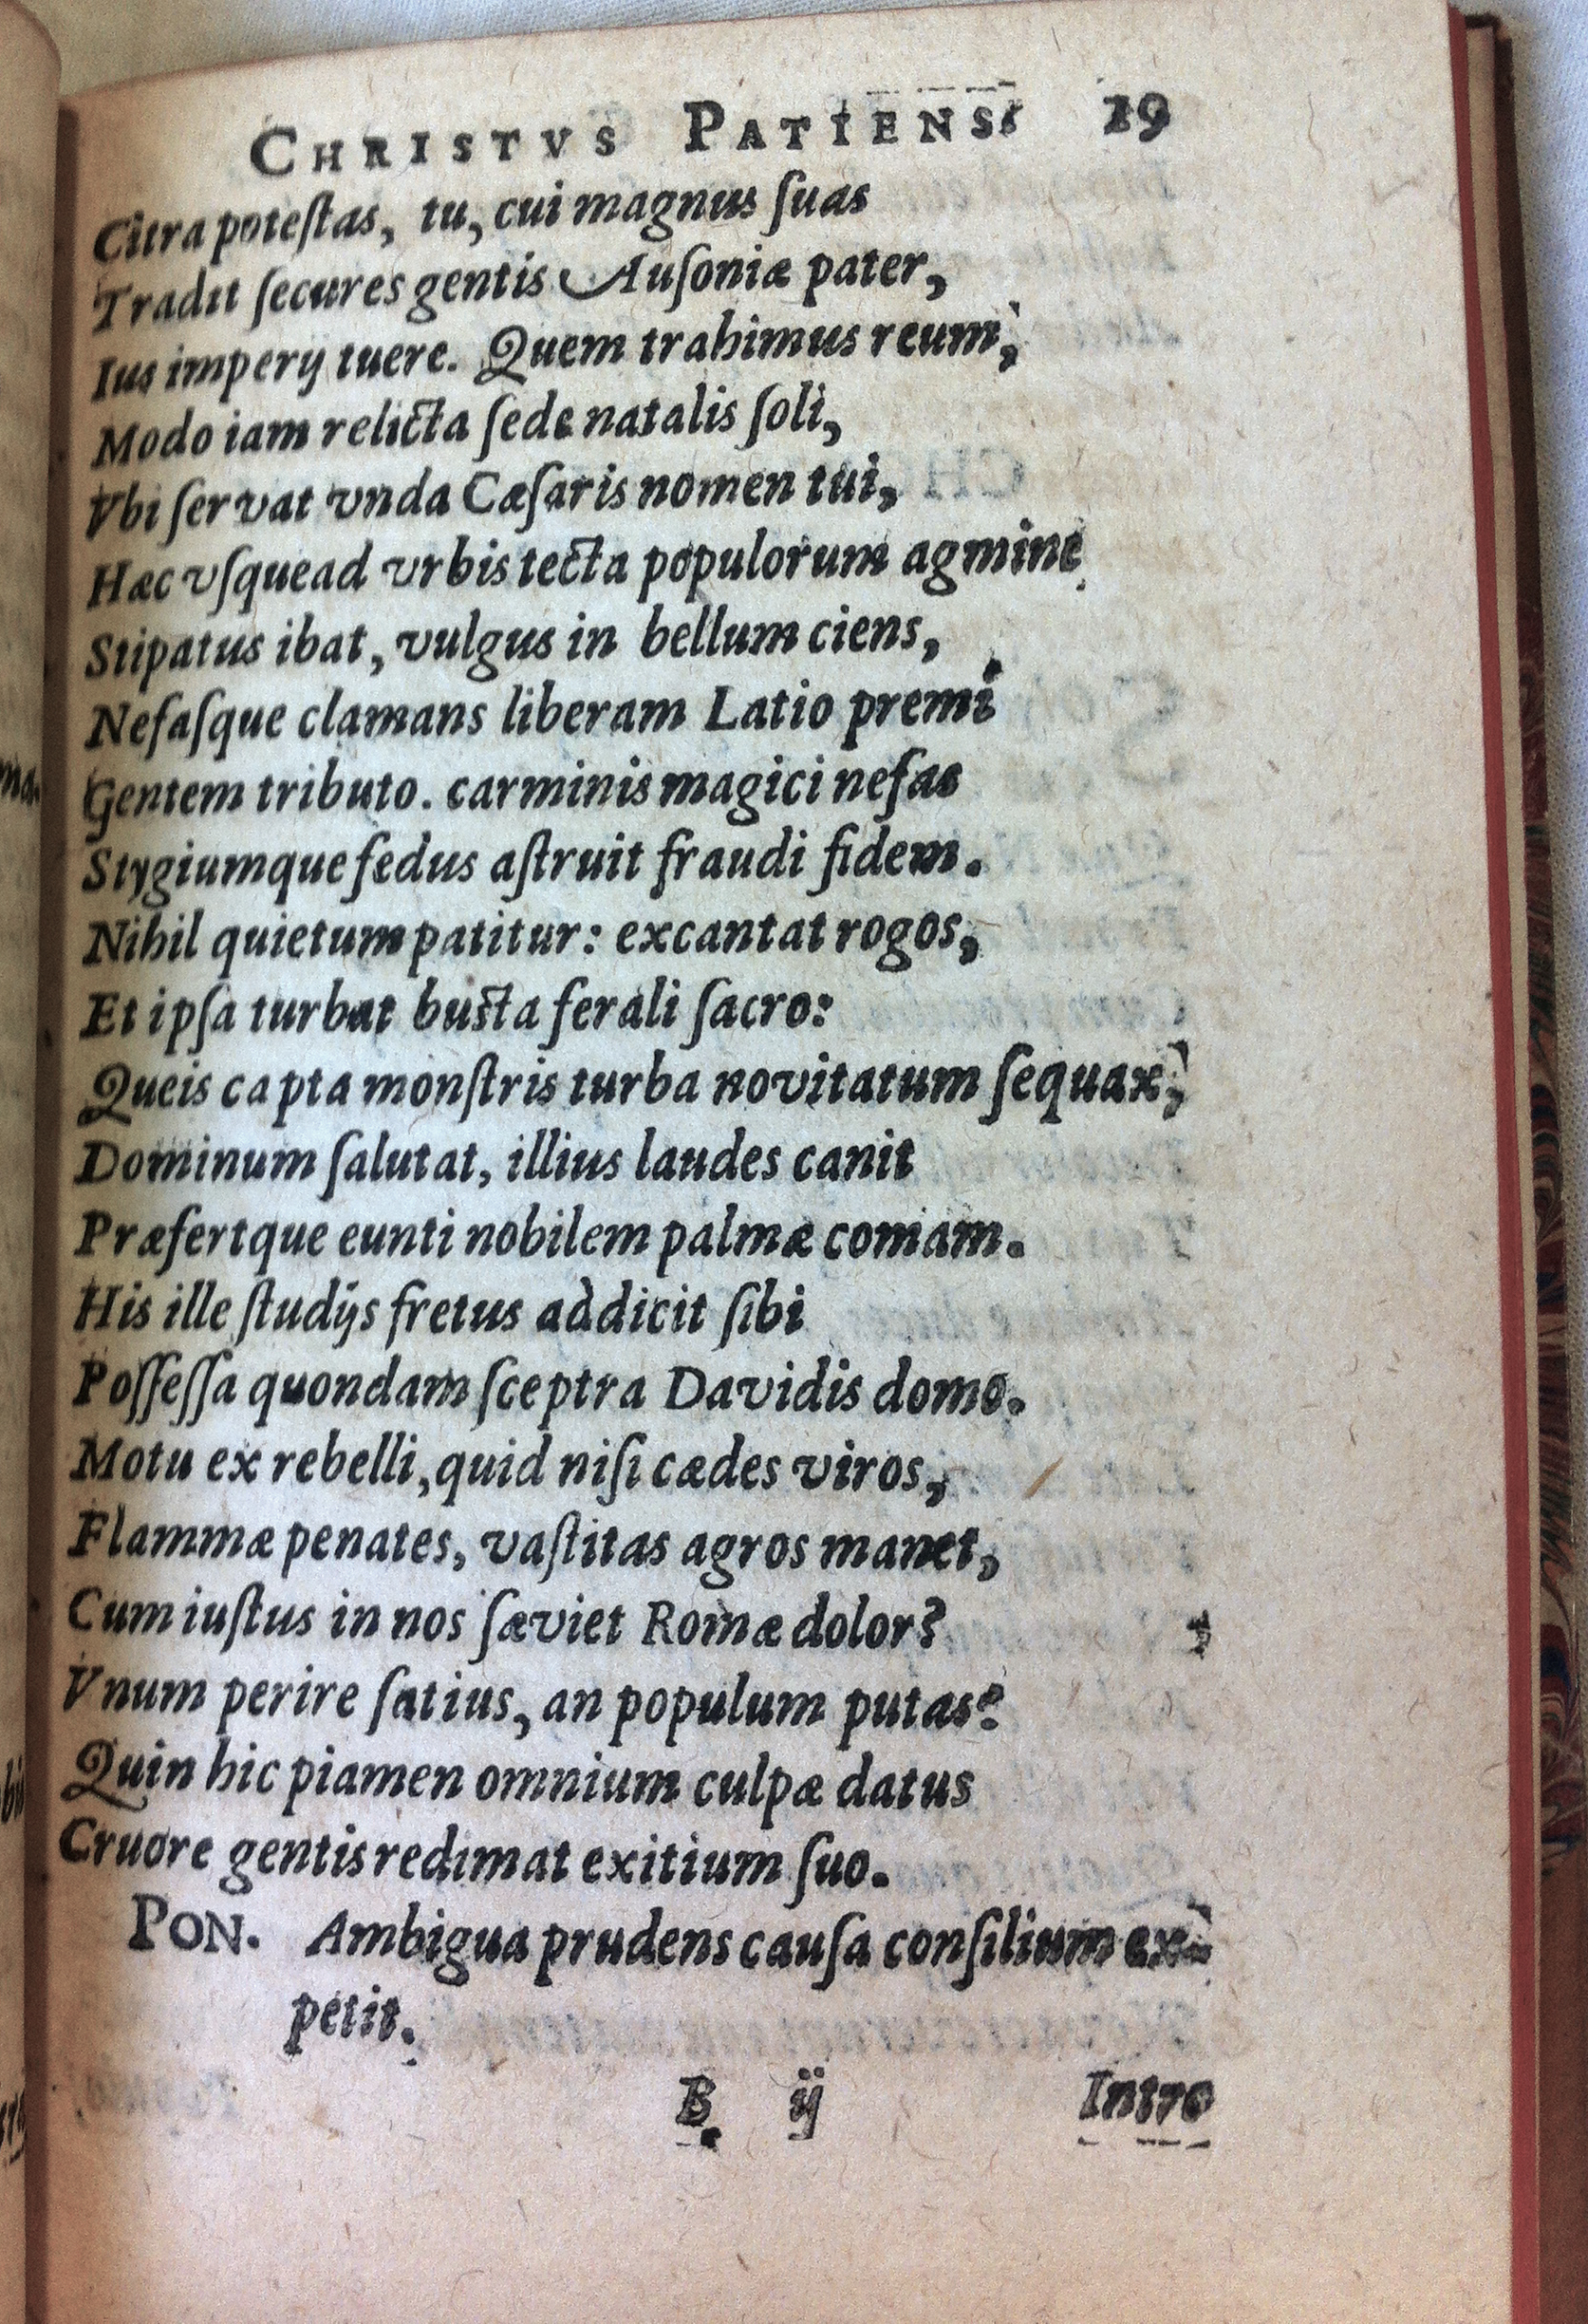 CHRISTVS PATIENS. 19
Citra poteſtas, tu, cui magnus ſuas
Tradit ſecures gentis Auſoniæ pater,
Ius imperij tuere. Quem trahimus reum,
Modo iam relicta ſede natalis ſoli,
Vbi ſervat vnda Cæſaris nomen tui,
Hæc vſque ad vrbis tecta populorum agmine
Stipatus ibat, vulgus in bellum ciens,
Nefaſque clamans liberam Latio premi
Gentem tributo. carminis magici nefas
Stygiumque fedus aſtruit fraudi fidem.
Nihil quietum patitur: excantat rogos,
Et ipſa turbat buſta ferali ſacro:
Queis capta monſtris turba novitatum ſequax,
Dominum ſalutat, illius laudes canit
Præfertque eunti nobilem palmæ comam.
His ille ſtudijs fretus addicit ſibi
Poſſeſſa quondam ſceptra Davidis domo.
Motu ex rebelli, quid niſi cædes viros,
Flammæ penates, vaſtitas agros manet,
Cum iuſtus in nos ſæviet Romæ dolor?
Vnum perire ſatius, an populum putas?
Quin hic piamen omnium culpæ datus
Cruore gentis redimat exitium ſuo.
PON. Ambigua prudens cauſa conſilium ex-
petit.
B ij Intro